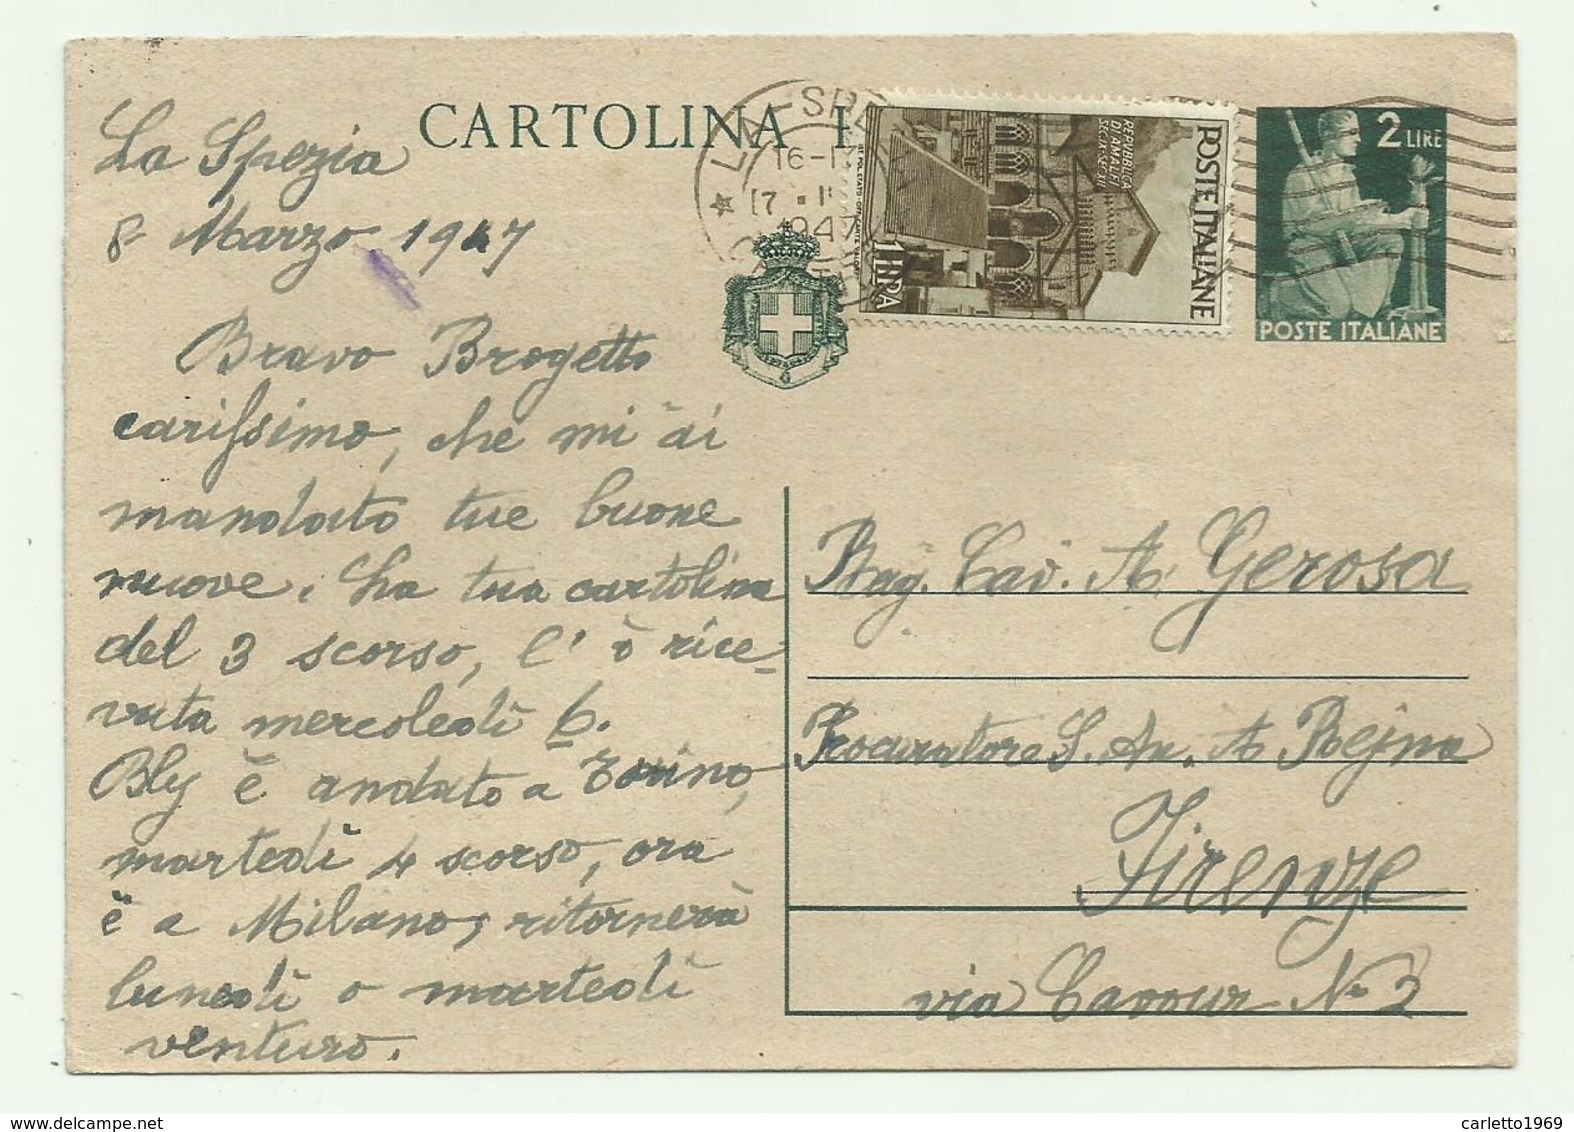 CARTOLINA
La Spezia
8 Marzo 1947
LA SPE
16-17
17
1947
POSTE ITALIANE
REPUBBLICA
DI AMALFI
SEC. IX-SEC. XII
1 LIRA
2 LIRE
POSTE ITALIANE
Bravo Brogetto
carissimo, che mi ài
mandato tue buone
nuove. La tua cartolina
del 3 scorso, l'ò rice-
vuta mercoledì 6.
Bly è andato a Torino,
martedì 4 scorso, ora
è a Milano, ritornerà
lunedì o martedì
venturo.
Rag. Cav. A. Gerosa
Procuratore S. An. A Rejna
Firenze
via Cavour N. 2
carletto1969